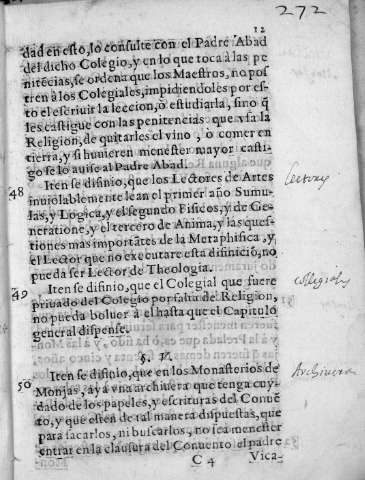 272
12
dad en esto, lo consulte con el Padre Abad
del dicho Colegio, y en lo que toca à las pe
nitẽcias, se ordena que los Maestros, no pos
tren à los Colegiales, impidiendoles por es-
to el escriuir la leccion, ò estudiarla, sino q̃
les castigue con las penitencias que vsa la
Religion, de quitarles el vino, ò comer en
tierra, y si huuieren menester mayor casti-
go se lo auise al Padre Abad.
48 Iten se difinio, que los Lectores de Artes
inuiolablemente lean el primer año Sumu-
las, y Logica, y el segundo Fisicos, y de Ge-
neratione, y el tercero de Anima, y las ques-
tiones mas importãtes de la Metaphisica, y
el Lector que no executare esta difinició, no
pueda ser Lector de Theologia.
Lectores
49 Iten se difinio, que el Colegial que fuere
priuado del Colegio por falta de Religion,
no pueda boluer à el hasta que el Capitulo
general dispense.
collegiales
§. V.
50 Iten se difinio, que en los Monasterios de
Monjas, aya vna archiuera que tenga cuy-
dado de los papeles, y escrituras del Conuẽ
to, y que estèn de tal manera dispuestas, que
para sacarlos, ni buscarlos, no sea menester
entrar en la clausura del Conuento el padre
Archivera
C 4 Vica-